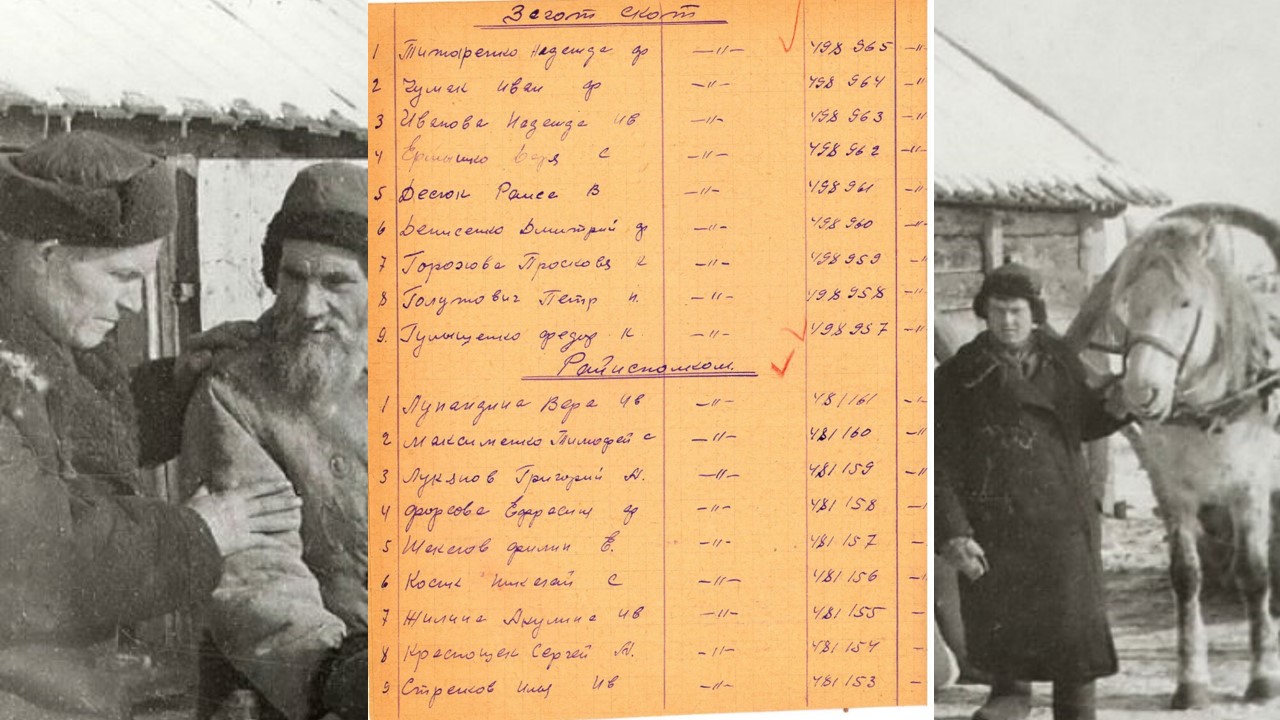 Загот скот
1 Тиморенко Надежда ф —"— 498 965 —"
2 Чумак Иван ф —"— 498 964 —"
3 Иванова Надежда Ив —"— 498 963 —"
4 Ермышко Вера С —"— 498 962 —"
5 Десюк Раиса В —"— 498 961 —"
6 Денисенко Дмитрий ф —"— 498 960 —"
7 Горохова Просковя К —"— 498 959 —"
8 Голужович Петр И. —"— 498 958 —"
9. Гумыщенко федор К —"— 498 957 —"
Райисполком.
1 Лупандина Вера Ив —"— 481 161 —
2 Максименко Тимофей С —"— 481 160 —"
3 Лукянов Григорий А. —"— 481 159 —"
4 фурсова Ефрасин ф —"— 481 158 —
5 филип Е. —"— 481 157 —
6 Косик Николай С —"— 481 156 —
7 Жилина Акулина Ив —"— 481 155 —
8 Краснощек Сергей А. —"— 481 154 —
9 Стрелков Илья Ив —"— 481 153 —